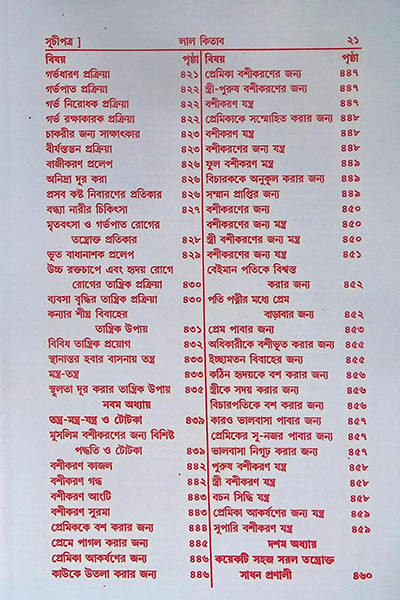 সূচীপত্র ] লাল কিতাব ২১
বিষয় পৃষ্ঠা
গর্ভধারণ প্রক্রিয়া ৪২১
গর্ভপাত প্রক্রিয়া ৪২২
গর্ভ নিরোধক প্রক্রিয়া ৪২২
গর্ভ রক্ষাকারক প্রক্রিয়া ৪২২
চাকরীর জন্য সাক্ষাৎকার ৪২৩
বীর্যস্তম্ভন প্রক্রিয়া ৪২৩
বাজীকরণ প্রলেপ ৪২৬
অনিদ্রা দূর করা ৪২৬
প্রসব কষ্ট নিবারণের প্রতিকার ৪২৬
বন্ধ্যা নারীর চিকিৎসা ৪২৭
মৃতবৎসা ও গর্ভপাত রোগের
তন্ত্রোক্ত প্রতিকার ৪২৮
ভূত বাধানাশক প্রলেপ ৪২৯
উচ্চ রক্তচাপে এবং হৃদয় রোগে
রোগের তান্ত্রিক প্রক্রিয়া ৪৩০
ব্যবসা বৃদ্ধির তান্ত্রিক প্রক্রিয়া ৪৩০
কন্যার শীঘ্র বিবাহের
তান্ত্রিক উপায় ৪৩১
বিবিধ তান্ত্রিক প্রয়োগ ৪৩২
স্থানান্তর হবার বাসনায় তন্ত্র ৪৩৩
মন্ত্র-তন্ত্র ৪৩৩
স্থূলতা দূর করার তান্ত্রিক উপায় ৪৩৫
নবম অধ্যায়
তন্ত্র-মন্ত্র-যন্ত্র ও টোটকা ৪৩৯
মুসলিম বশীকরণের জন্য বিশিষ্ট
পদ্ধতি ও টোটকা ৪৩৯
বশীকরণ কাজল ৪৪২
বশীকরণ গন্ধ ৪৪২
বশীকরণ আংটি ৪৪৩
বশীকরণ সুরমা ৪৪৩
প্রেমিককে বশ করার জন্য ৪৪৪
প্রেমে পাগল করার জন্য ৪৪৫
প্রেমিকা আকর্ষণের জন্য ৪৪৬
কাউকে উতলা করার জন্য ৪৪৬
বিষয় পৃষ্ঠা
প্রেমিকা বশীকরণের জন্য ৪৪৭
স্ত্রী-পুরুষ বশীকরণের জন্য ৪৪৭
বশীকরণ যন্ত্র ৪৪৭
প্রেমিকাকে সম্মোহিত করার জন্য ৪৪৮
বশীকরণ যন্ত্র ৪৪৮
বশীকরণের জন্য যন্ত্র ৪৪৮
ফুল বশীকরণ মন্ত্র ৪৪৯
বিচারককে অনুকূল করার জন্য ৪৪৯
সম্মান প্রাপ্তির জন্য ৪৪৯
বশীকরণের জন্য ৪৫০
বশীকরণের জন্য মন্ত্র ৪৫০
স্ত্রী বশীকরণের জন্য মন্ত্র ৪৫০
বশীকরণের জন্য যন্ত্র ৪৫১
বেইমান পতিকে বিশ্বস্ত
করার জন্য ৪৫২
পতি পত্নীর মধ্যে প্রেম
বাড়াবার জন্য ৪৫২
প্রেম পাবার জন্য ৪৫৩
অধিকারীকে বশীভূত করার জন্য ৪৫৫
ইচ্ছামতন বিবাহের জন্য ৪৫৫
কঠিন হৃদয়কে বশ করার জন্য ৪৫৬
স্ত্রীকে সদয় করার জন্য ৪৫৬
বিচারপতিকে বশ করার জন্য ৪৫৬
কারও ভালবাসা পাবার জন্য ৪৫৭
প্রেমিকের সু-নজর পাবার জন্য ৪৫৭
ভালবাসা নিগূঢ় করার জন্য ৪৫৭
পুরুষ বশীকরণ যন্ত্র ৪৫৮
স্ত্রী বশীকরণ যন্ত্র ৪৫৮
বচন সিদ্ধি যন্ত্র ৪৫৮
প্রেমিকা আকর্ষণের জন্য যন্ত্র ৪৫৯
সুপারি বশীকরণ যন্ত্র ৪৫৯
দশম অধ্যায়
কয়েকটি সহজ সরল তন্ত্রোক্ত
সাধন প্রণালী ৪৬০